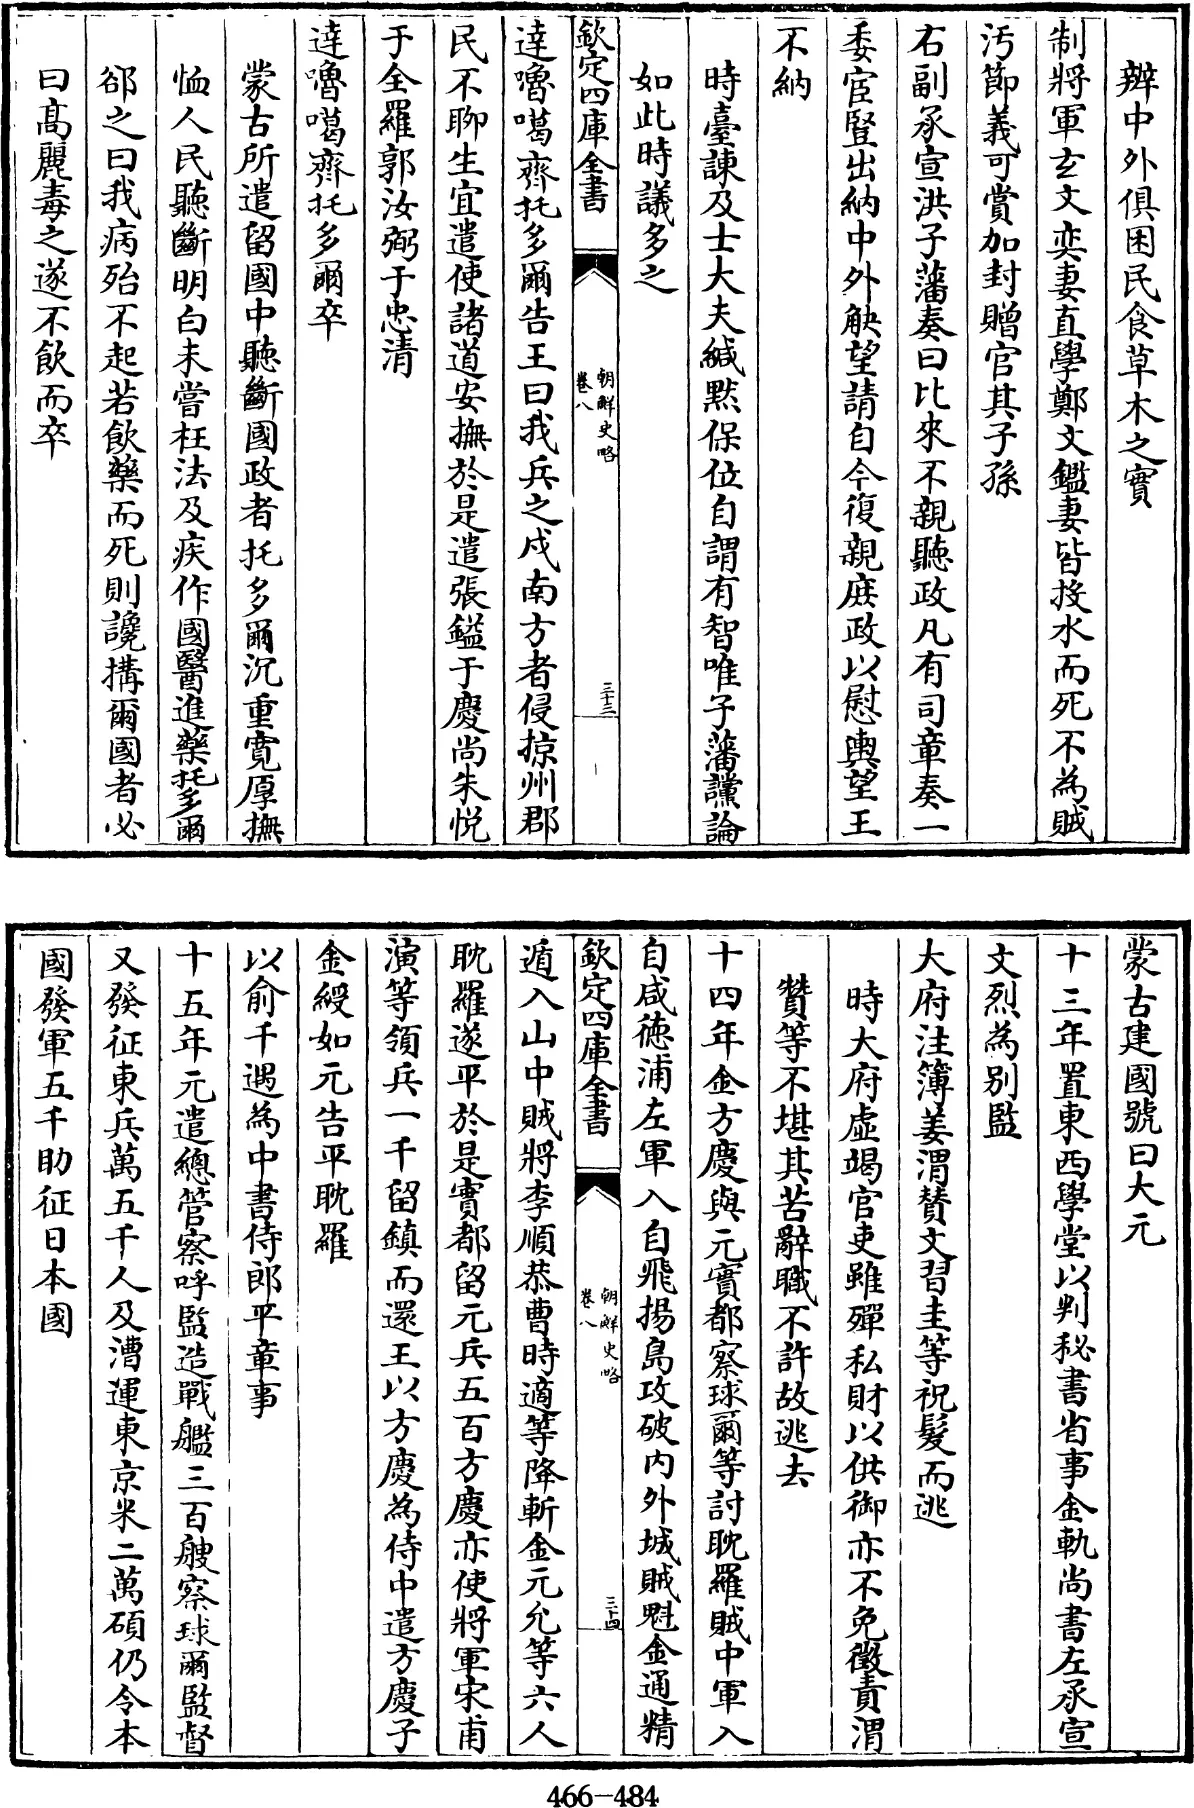 辨中外俱困民食草木之實
制將軍玄文奕妻直學鄭文鑑妻皆投水而死不為賊
汚節義可賞加封贈官其子孫
右副承宣洪子藩奏曰比來不親聽政凡有司章奏一
委宦豎出納中外觖望請自今復親庶政以慰輿望王
不納
時臺諫及士大夫緘默保位自謂有智唯子藩讜論
如此時議多之
欽定四庫全書
朝鮮史略
卷八
三十三
達嚕噶齊托多爾告王曰我兵之戍南方者侵掠州郡
民不聊生宜遣使諸道安撫於是遣張鎰于慶尚朱悅
于全羅郭汝弼于忠清
達嚕噶齊托多爾卒
蒙古所遣留國中聽斷國政者托多爾沉重寛厚撫
恤人民聽斷明白未嘗枉法及疾作國醫進藥托多爾
郤之曰我病殆不起若飲藥而死則讒搆爾國者必
曰高麗毒之遂不飲而卒
蒙古建國號曰大元
十三年置東西學堂以判秘書省事金軌尚書左承宣
文烈為別監
大府注簿姜渭贊文習圭等祝髮而逃
時大府虛竭官吏雖殫私財以供御亦不免徵責渭
贊等不堪其苦辭職不許故逃去
十四年金方慶與元實都察球爾等討耽羅賊中軍入
自咸徳浦左軍入自飛揚島攻破內外城賊魁金通精
欽定四庫全書
朝鮮史略
卷八
三十四
遁入山中賊將李順恭曹時適等降斬金元允等六人
耽羅遂平於是實都留元兵五百方慶亦使將軍宋甫
演等領兵一千留鎮而還王以方慶為侍中遣方慶子
金綬如元告平耽羅
以俞千遇為中書侍郎平章事
十五年元遣總管察呼監造戰艦三百艘察球爾監督
又發征東兵萬五千人及漕運東京米二萬碩仍令本
國發軍五千助征日本國
466-484